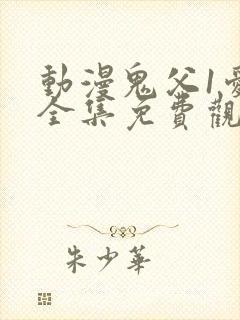 動漫鬼父1
全集免費觀
朱少華